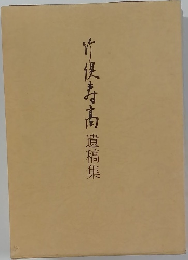 竹俣寿高遺稿集